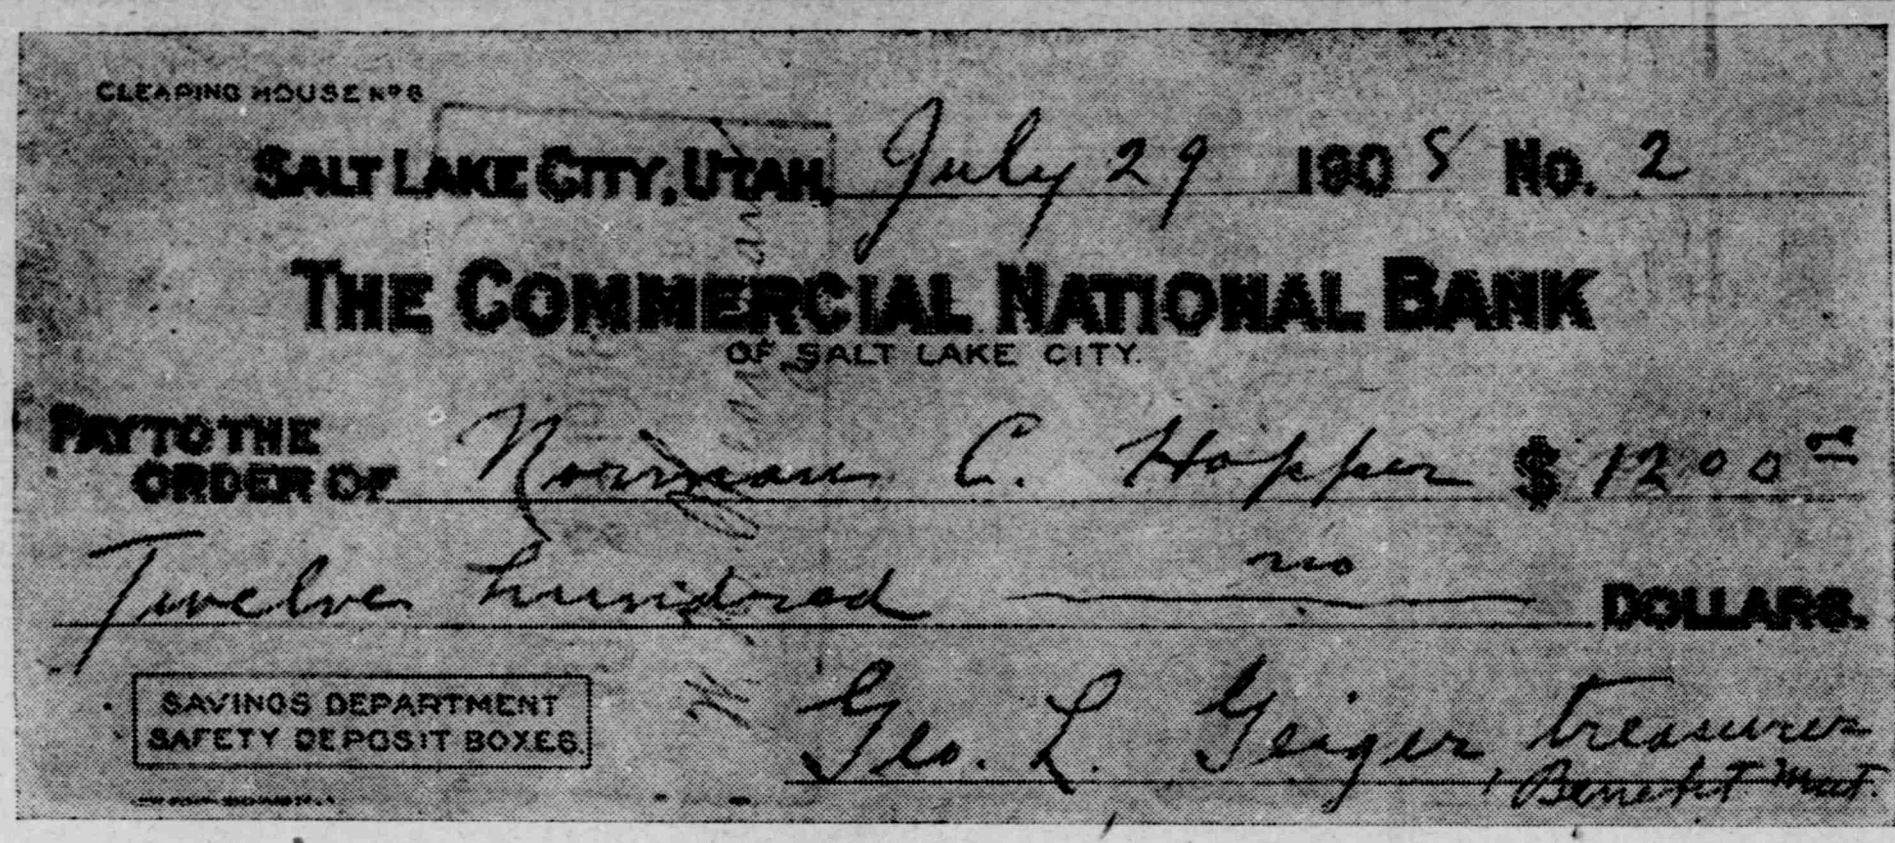 CLEARING HOUSE Nº 6
SALT LAKE CITY, UTAH, July 29 1905 No. 2
THE COMMERCIAL NATIONAL BANK
OF SALT LAKE CITY.
PAY TO THE
ORDER OF Norman C. Hopper $ 1200 00
Twelve hundred no DOLLARS.
SAVINGS DEPARTMENT
SAFETY DEPOSIT BOXES.
Geo. L. Geiger, treasurer
Benefit Mat.